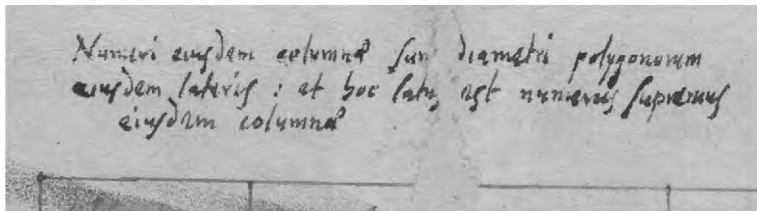 Numeri eiusdem columnæ sun diametri polygonorum
eiusdem lateris : et hoc latus est numerus supremus
eiusdem columnæ